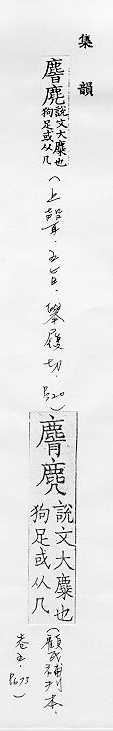 集韻
麂
說文大麋也
狗足或从几
(上聲.五旨.舉履切.P320)
麂
說文大麋也
狗足或从几
(顧氏補刊本.
卷五.P673)